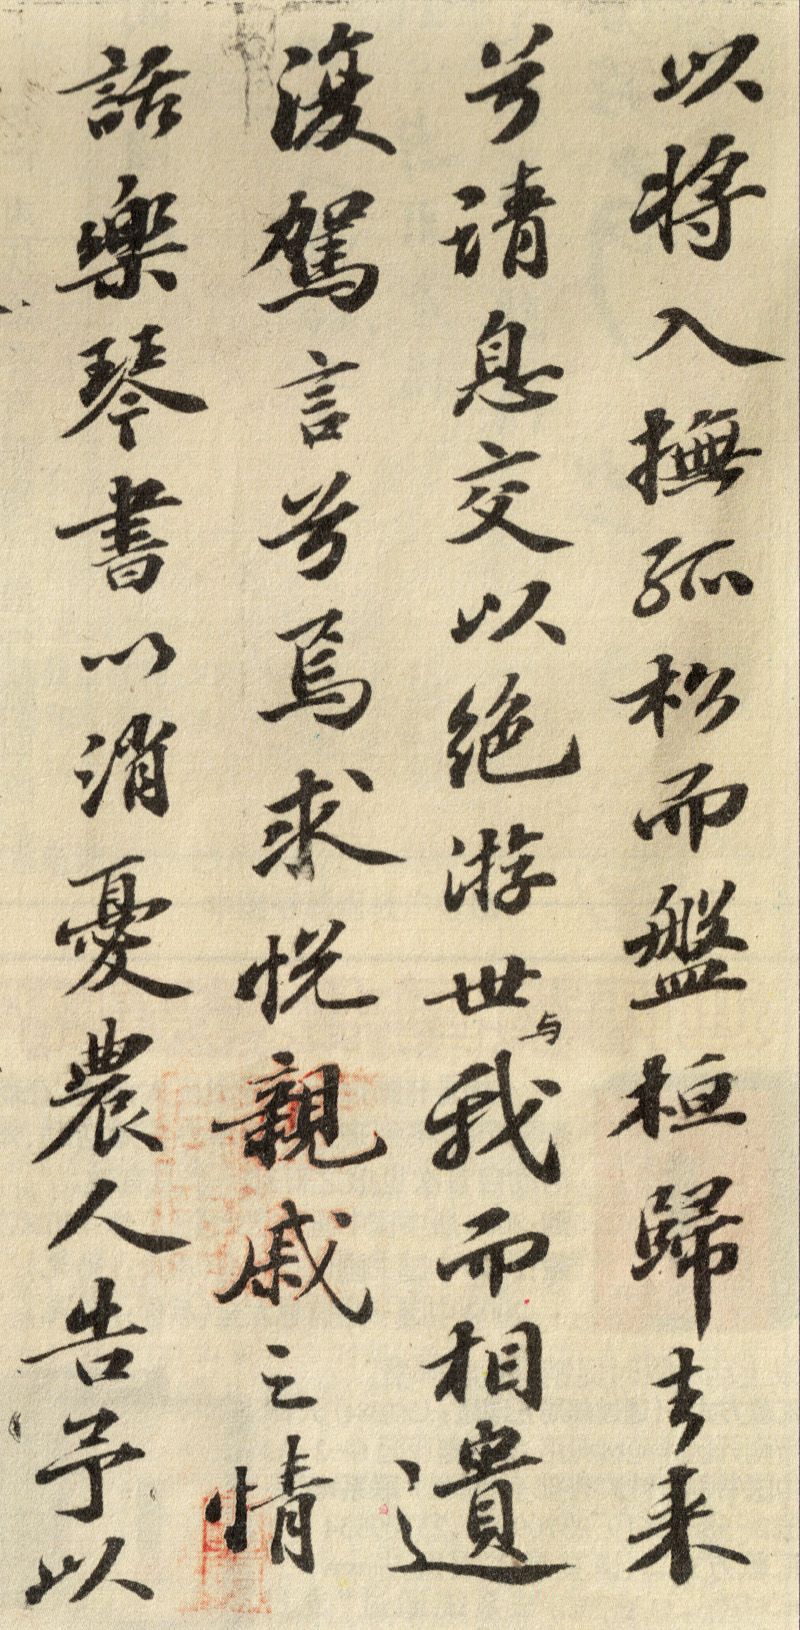 以将入撫孤松而盤桓歸去来
兮請息交以絶游世与我而相遺
復駕言兮焉求悦親戚之情
話樂琴書以消憂農人告予以